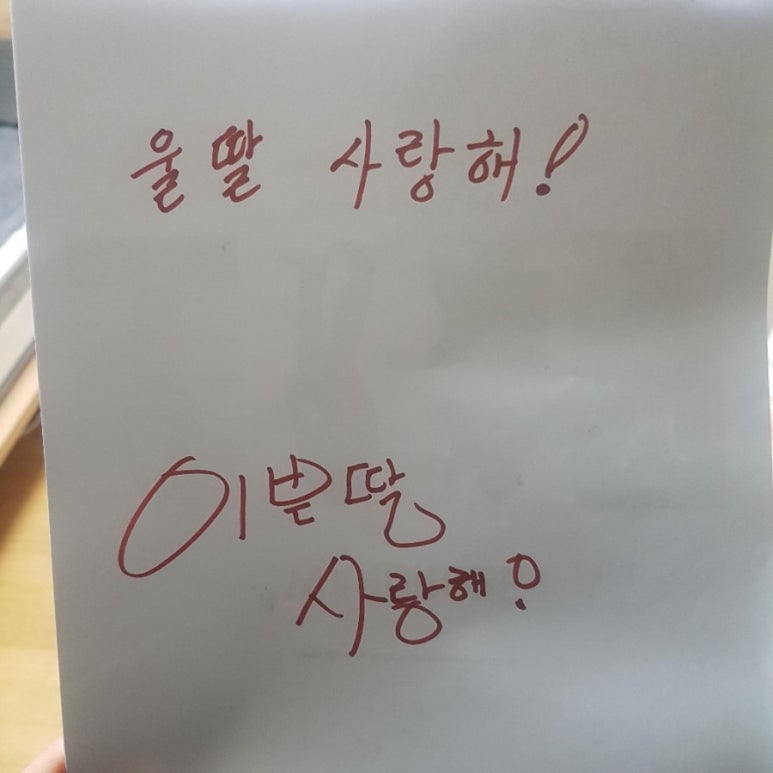 울딸 사랑해!
이쁜딸
사랑해!